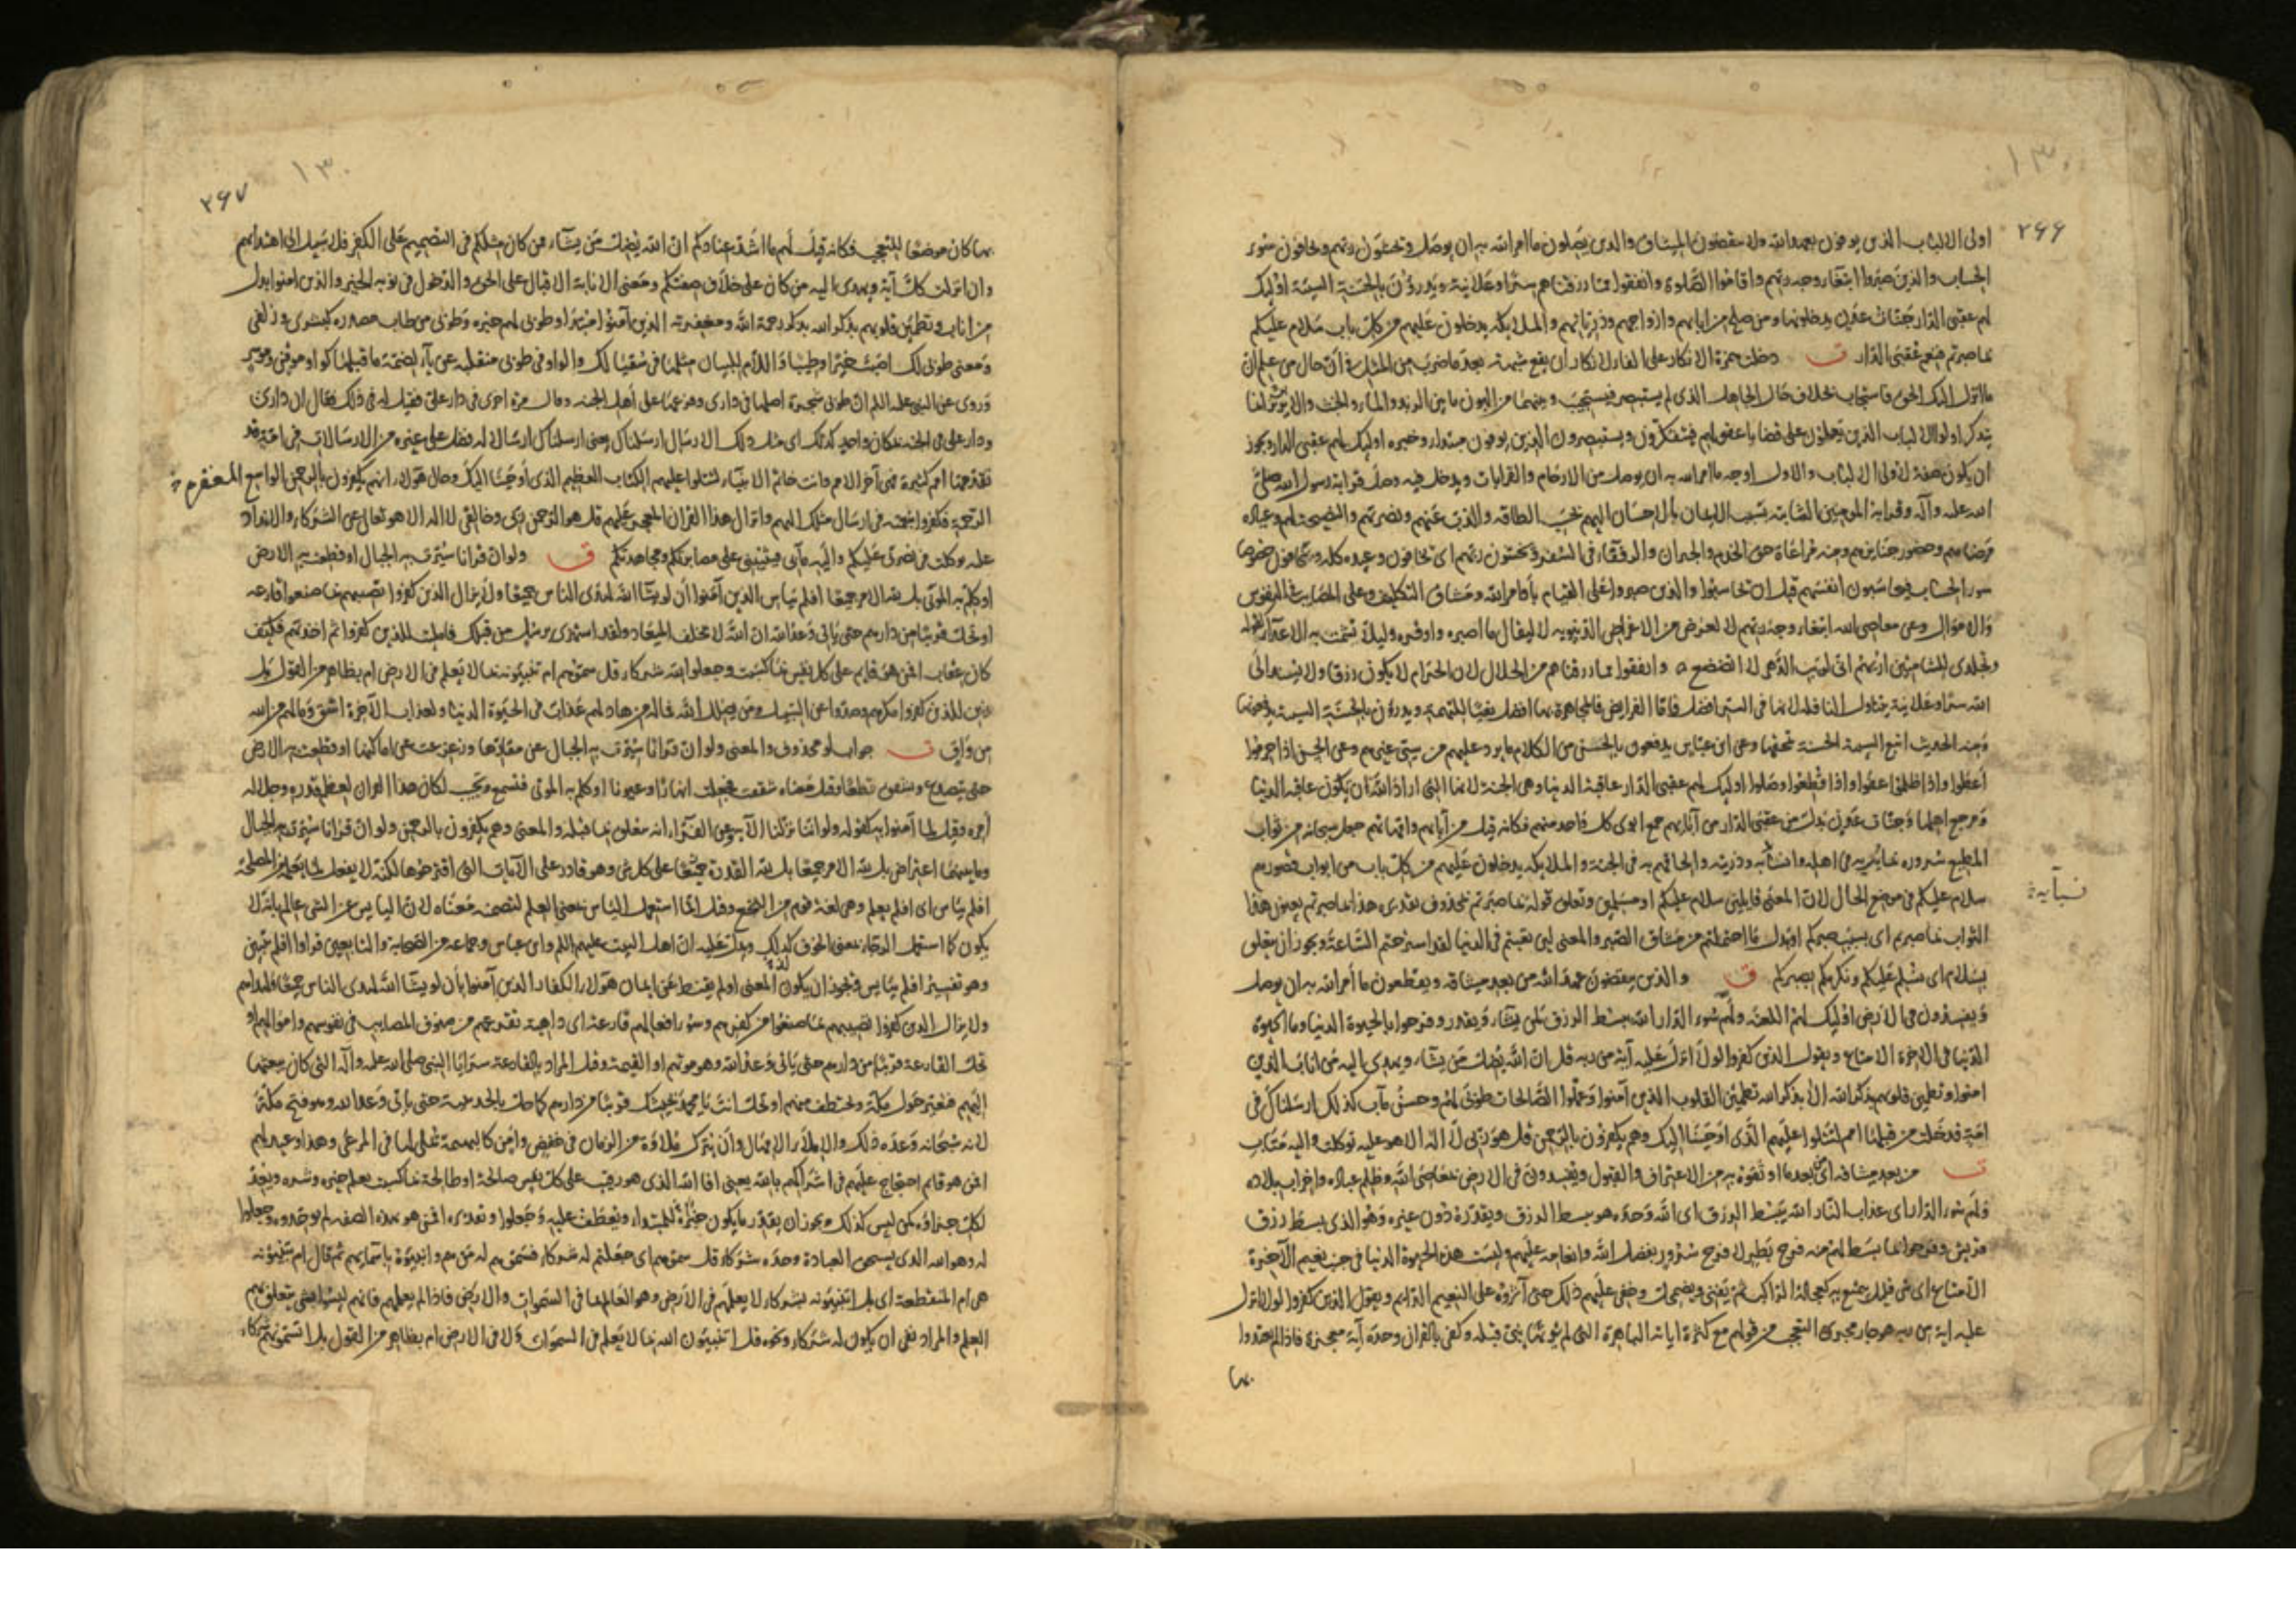 ١٣٠
٢۶۶
اولى الالباب الذين يوفون بعهد الله ولا ينقضون الميثاق والذين يصلون ما امر الله به ان يوصل ويخشون ربهم ويخافون سوء
الحساب والذين صبروا ابتغاء وجه ربهم واقاموا الصلوة وانفقوا مما رزقناهم سرا وعلانية ويدرؤن بالحسنة السيئة اولئك
لهم عقبى الدار جنات عدن يدخلونها ومن صلح من ابائهم وازواجهم وذرياتهم والملائكة يدخلون عليهم من كل باب سلام عليكم
بما صبرتم فنعم عقبى الدار ق دخلت همزة الانكار على الفاء لانكار ان يقع شبهة بعد ما ضرب من المثل في ان حال من علم ان
ما انزل اليك الحق فاستجاب بخلاف حال الجاهل الذي لم يستبصر فيستجيب وبينهما من البون ما بين الزبد والماء والخبث والابريز انما
يتذكر اولوا الالباب الذين يعملون على قضايا عقولهم فيتفكرون ويستبصرون الذين يوفون مبتداء وخبره اولئك لهم عقبى الدار ويجوز
ان يكون صفة لاولى الالباب والاول اوجه ما امر الله به ان يوصل من الارحام والقرابات ويدخل فيه وصل قرابة رسول الله صلى
الله عليه وآله وقرابة المؤمنين الثابتة بسبب الايمان بالاحسان اليهم بحسب الطاقة والذب عنهم ونصرتهم والنصيحة لهم وعيادة
مرضاهم وحضور جنايزهم ومنه مراعاة حق الخدم والجيران والرفقاء في السفر ويخشون ربهم اى يخافون وعيده كله ويخافون خصوصا
سوء الحساب فيحاسبون انفسهم قبل ان يحاسبوا والذين صبروا على القيام باوامر الله ومشاق التكليف وعلى المصايب في النفوس
والاموال وعن معاصى الله ابتغاء وجه ربهم لا لغرض من الاغراض الدنيوية لا ليقال ما اصبره واوقره وليلا يشمت به الاعداء كقوله
وتجلدى للشامتين اريهم انى لريب الدهر لا اتضعضع وانفقوا مما رزقناهم من الحلال لان الحرام لا يكون رزقا ولا يسند الى
الله سرا وعلانية يتناول النافلة لانها في السر افضل فاما الفرايض فالمجاهرة بها افضل نفيا للتهمة ويدرؤن بالحسنة السيئة يدفعونها
ومنه الحديث اتبع السيئة الحسنة تمحها وعن ابن عباس يدفعون بالحسن من الكلام ما يرد عليهم من سيئ غيرهم وعن الحسن اذا حرموا
اعطوا واذا ظلموا عفوا واذا قطعوا وصلوا اولئك لهم عقبى الدار عاقبة الدنيا وهى الجنة لانها التى اراد الله ان يكون عاقبة الدنيا
ومرجع اهلها وجنات عدن بدل من عقبى الدار من آبائهم جمع ابوى كل واحد منهم فكانه قيل من آبائهم وامهاتهم جعل سبحانه من ثواب
المطيع سروره بما يريه في اهله وذريته والحاقهم به في الجنة والملائكة يدخلون عليهم من كل باب من ابواب قصورهم
نسايه
سلام عليكم في موضع الحال لان المعنى قايلين سلام عليكم او مسلمين وتعلق قوله بما صبرتم بمحذوف تقديره هذا بما صبرتم يعنون هذا
الثواب بما صبرتم اى بسبب صبركم او بدل ما احتملتم من مشاق الصبر والمعنى لئن تعبتم في الدنيا لقد استرحتم الساعة ويجوز ان يتعلق
بسلام اى نسلم عليكم ونكرمكم بصبركم ق والذين ينقضون عهد الله من بعد ميثاقه ويقطعون ما أمر الله به ان يوصل
ويفسدون في الارض اولئك لهم اللعنة ولهم سوء الدار الله يبسط الرزق لمن يشاء ويقدر وفرحوا بالحيوة الدنيا وما الحيوة
الدنيا في الاخرة الا متاع ويقول الذين كفروا لولا انزل عليه آية من ربه قل ان الله يضل من يشاء ويهدى اليه من اناب الذين
امنوا وتطمئن قلوبهم بذكر الله الا بذكر الله تطمئن القلوب الذين آمنوا وعملوا الصالحات طوبى لهم وحسن مآب كذلك ارسلناك في
امة قد خلت من قبلها امم لتتلوا عليهم الذى اوحينا اليك وهم يكفرون بالرحمن قل هو ربى لا اله الا هو عليه توكلت واليه متاب
ت من بعد ميثاقه اى من بعد ما اوثقوه به من الاعتراف والقبول ويفسدون في الارض بمعاصى الله وظلم عباده واخراب بلاده
ولهم سوء الدار اى عذاب النار الله يبسط الرزق اى الله وحده هو يبسط الرزق ويقدره دون غيره وهو الذى بسط رزق
قريش وفرحوا بما بسط لهم منه فرح بطر لا فرح سرور بفضل الله وانعامه عليهم وليست هذه الحيوة الدنيا في جنب نعيم الآخرة
الا متاع اى شئ قليل يتمتع به كعجالة الراكب ثم يفنى ويضمحل وخفى عليهم ذلك حتى آثروه على النعيم الدائم ويقول الذين كفروا لولا انزل
عليه اية من ربه هو جار مجرى التعجب من قولهم مع كثرة اياته الباهرة التى لم يؤتها نبى قبله وكفى بالقرآن وحده آية معجزة فاذا لم يعتدوا
بها
١٣٠
٢۶٧
بها كان موضعا للتعجب فكانه قيل لهم ما اشد عنادكم ان الله يضل من يشاء ممن كان مثلكم في التصميم على الكفر فلا سبيل الى اهتدائهم
وان انزلت كل آية ويهدى اليه من كان على خلاف صفتكم ومعنى الانابة الاقبال على الحق والدخول في نوبة الخير والذين امنوا بدل
من اناب وتطمئن قلوبهم بذكر الله بذكر رحمة الله ومغفرته الذين آمنوا مبتدا وطوبى لهم خبره وطوبى من طاب مصدر كبشرى وزلفى
ومعنى طوبى لك اصبت خيرا وطيبا واللام للبيان مثلها في سقيا لك والواو في طوبى منقلبة عن ياء لضمة ما قبلها كواو موقن وموسر
وروى عن النبى عليه السلم ان طوبى شجرة اصلها في دارى وفرعها على أهل الجنة وقال مرة اخرى في دار على فقيل له في ذلك فقال ان دارى
ودار على في الجنة بمكان واحد كذلك اى مثل ذلك الارسال ارسلناك يعنى ارسلناك ارسالا له فضل على غيره من الارسالات في امة قد
تقدمتها امم كثيرة فهى آخر الامم وانت خاتم الانبياء لتتلوا عليهم الكتاب العظيم الذى اوحينا اليك وحال هؤلاء انهم يكفرون بالرحمن الواسع
الرحمة فكفروا بنعمته في ارسال مثلك اليهم وانزال هذا القران المعجز عليهم قل هو الرحمن ربى وخالقى لا اله الا هو تعالى عن الشركاء والانداد
عليه توكلت في نصرتى عليكم واليه مآبى فيثيبنى على مصابرتكم ومجاهدتكم ق ولو ان قرانا سيرت به الجبال او قطعت به الارض
او كلم به الموتى بل لله الامر جميعا افلم ييأس الذين آمنوا أن لو يشاء الله لهدى الناس جميعا ولا يزال الذين كفروا تصيبهم بما صنعوا قارعة
او تحل قريبا من دارهم حتى يأتى وعد الله ان الله لا يخلف الميعاد ولقد استهزئ برسل من قبلك فامليت للذين كفروا ثم اخذتهم فكيف
كان عقاب افمن هو قايم على كل نفس بما كسبت وجعلوا لله شركاء قل سموهم ام تنبئونه بما لا يعلم في الارض ام بظاهر من القول بل
زين للذين كفروا مكرهم وصدوا عن السبيل ومن يضلل الله فما له من هاد لهم عذاب في الحيوة الدنيا ولعذاب الآخرة اشق وما لهم من الله
من واق ت جواب لو محذوف والمعنى ولو ان قرانا سيرت به الجبال عن مقارها وزعزعت عن اماكنها او قطعت به الارض
حتى يتصدع وتتفرق قطعا وقيل معناه شققت فجعلت انهارا وعيونا او كلم به الموتى فتسمع وتجيب لكان هذا القران لعظم قدره وجلاله
أمره وقيل لما آمنوا به كقوله ولو اننا نزلنا الآية وعن الفراء انه متعلق بما قبله والمعنى وهم يكفرون بالرحمن ولو ان قرانا سيرت به الجبال
وما بينهما اعتراض بل لله الامر جميعا بل لله القدرة جميعا على كل شئ وهو قادر على الآيات التى اقترحوها لكنه لا يفعل لما يعلمه من المصلحة
افلم ييأس اى افلم يعلم وهى لغة قوم من النخع وقيل انما استعمل اليأس بمعنى العلم لتضمنه معناه لان اليايس عن الشئ عالم بانه لا
يكون كما استعمل الرجاء بمعنى الخوف كذلك ويدل عليه ان اهل البيت عليهم السلم وابن عباس وجماعة من الصحابة والتابعين قراوا افلم يتبين
وهو تفسير افلم ييأس فيجوز ان يكون المعنى اولم يقنط عن ايمان هؤلاء الكفار الذين آمنوا بأن لو يشاء الله لهدى الناس جميعا ولهداهم
ولا يزال الذين كفروا تصيبهم بما صنعوا من كفرهم وسوء افعالهم قارعة اى داهية تقرعهم من صنوف المصايب في نفوسهم واموالهم او
تحل القارعة قريبا من دارهم حتى يأتى وعد الله وهو موتهم او القيمة وقيل المراد بالقارعة سرايا النبى صلى الله عليه وآله التى كان يبعثها
اليهم فتغير حول مكة وتختطف منهم او تحل انت يا محمد بجيشك قريبا من دارهم كما حل بالحديبية حتى يأتى وعد الله وهو فتح مكة
لانه سبحانه وعده ذلك والاملاء الامهال وأن يترك ملاوة من الزمان في خفض وأمن كالبهيمة تملى لها في المرعى وهذا وعيد لهم
افمن هو قايم احتجاج عليهم في اشراكهم بالله يعنى افا الله الذى هو رقيب على كل نفس صالحة او طالحة بما كسبت يعلم خيره وشره ويعد
لكل جزاؤه كمن ليس كذلك ويجوز ان يقدر ما يكون خبرا للمبتداء ويعطف عليه وجعلوا وتقديره افمن هو بهذه الصفة لم يوحدوه وجعلوا
له وهو الله الذى يستحق العبادة وحده شركاء قل سموهم اى جعلتم له شركاء فسموهم له من هم وانبئوه باسمائهم ثم قال ام تنبئونه
هى ام المنقطعة اى بل اتنبئونه بشركاء لا يعلمهم في الارض وهو العالم بما في السموات والارض فاذا لم يعلمهم فانهم ليسوا بشئ يتعلق بهم
العلم والمراد نفى ان يكون له شركاء ونحوه قل اتنبئون الله بما لا يعلم في السموات ولا في الارض ام بظاهر من القول بل اتسمونهم شركاء